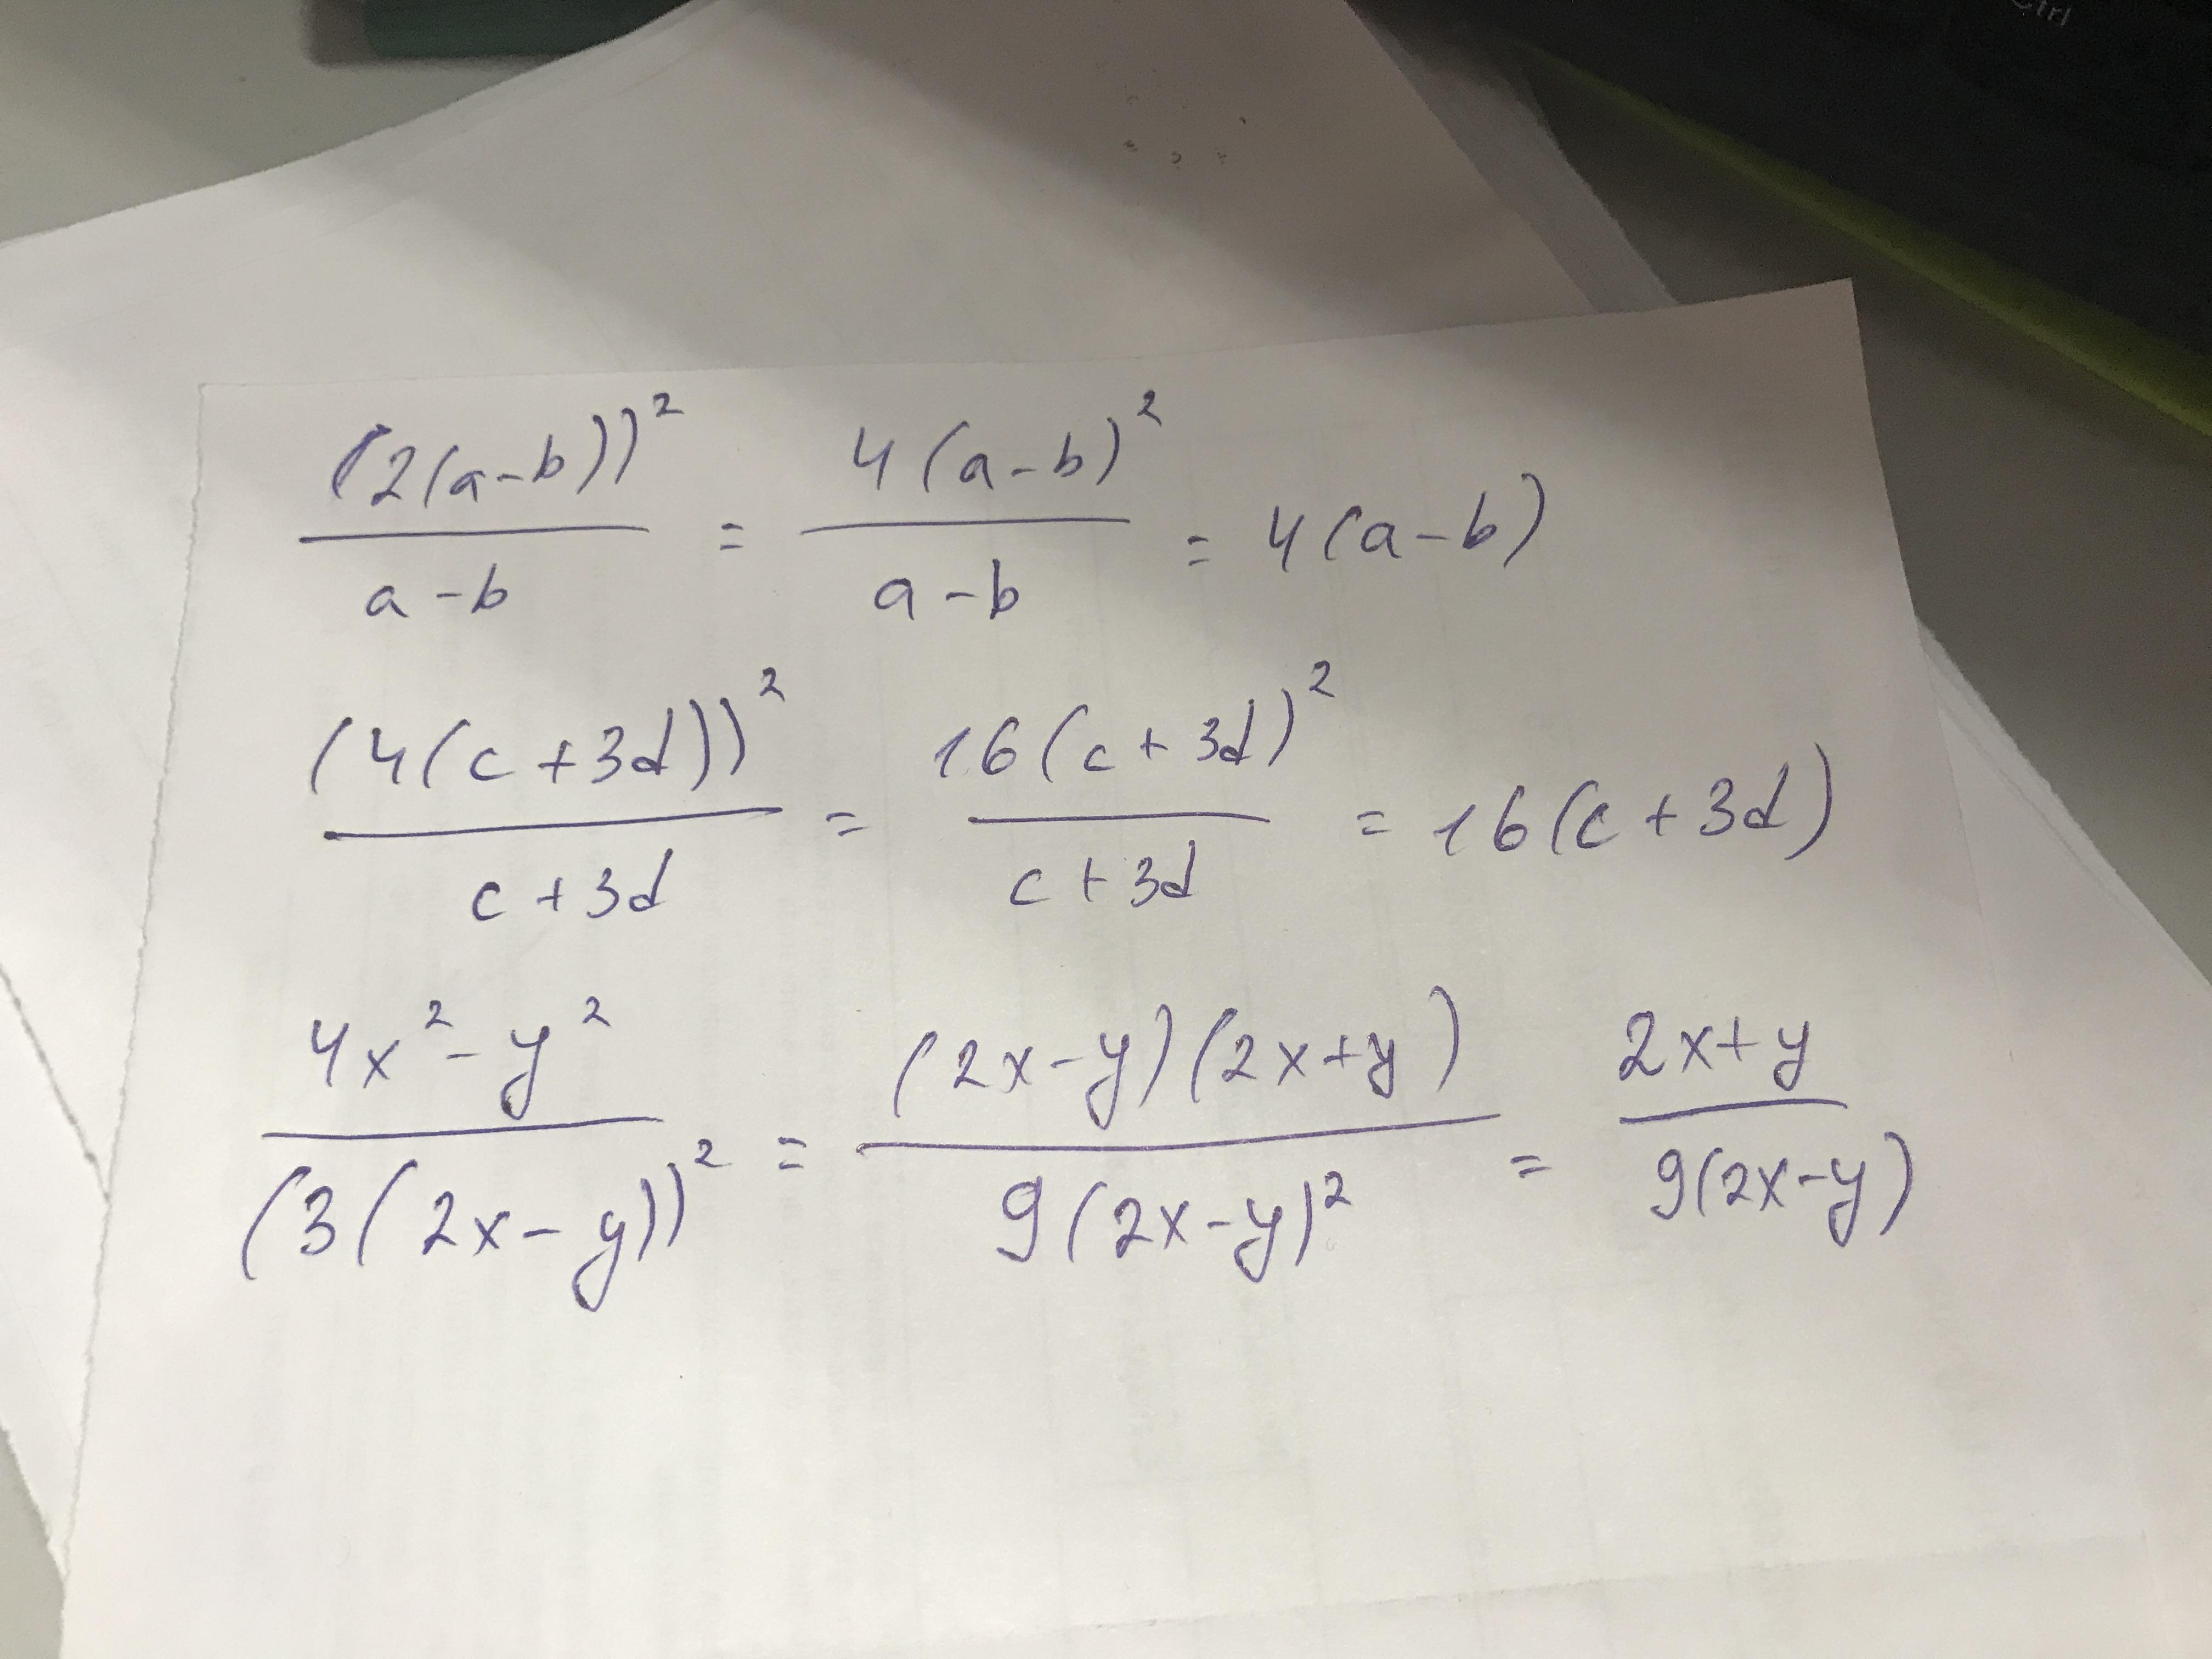 Ctrl
(2(a-b))² / a-b = 4(a-b)² / a-b = 4(a-b)
(4(c+3d))² / c+3d = 16(c+3d)² / c+3d = 16(c+3d)
4x²-y² / (3(2x-y))² = (2x-y)(2x+y) / 9(2x-y)² = 2x+y / 9(2x-y)